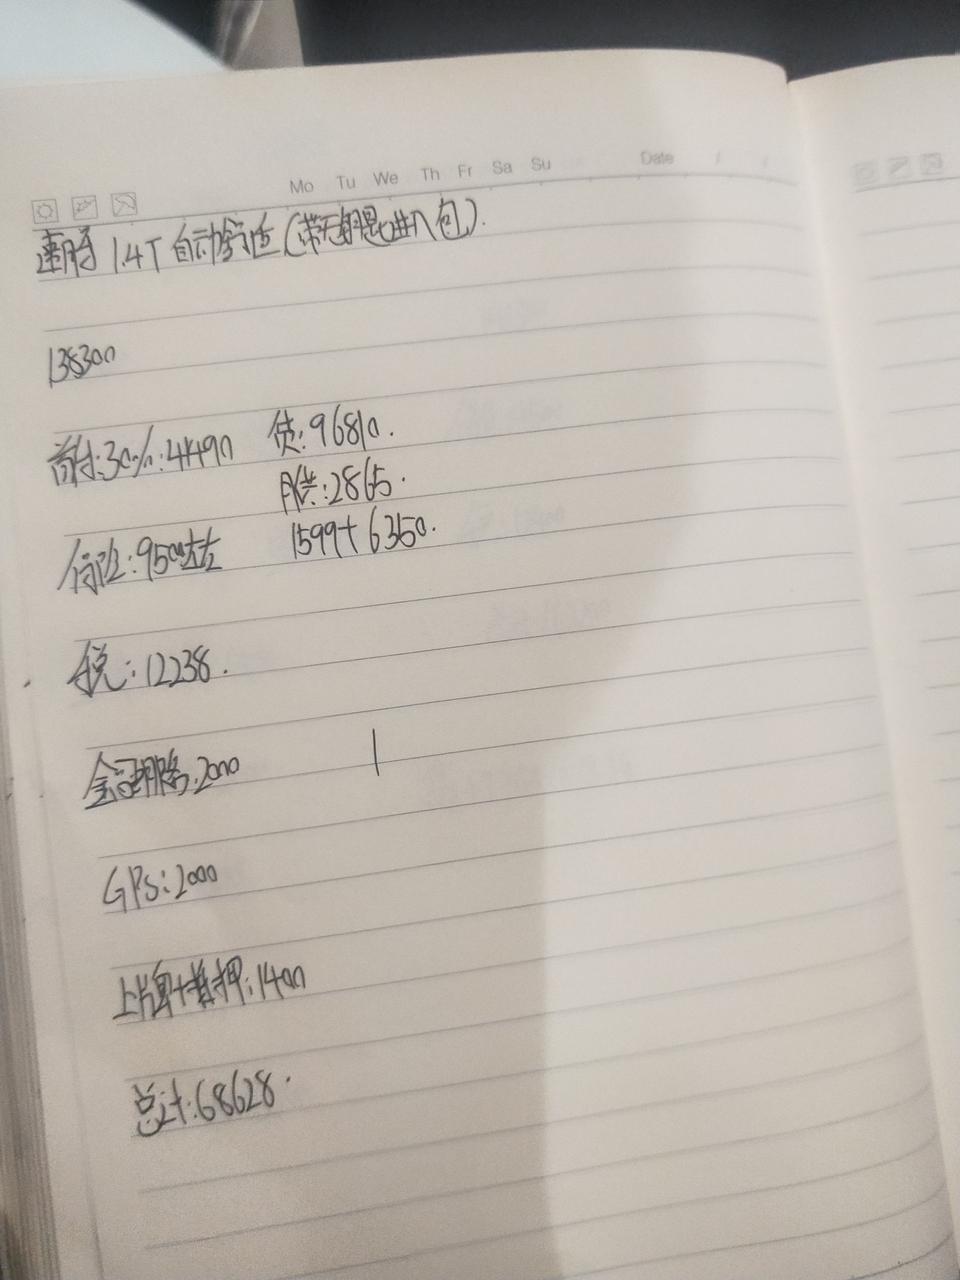 Mo Tu We Th Fr Sa Su Date / /
速腾 1.4T 自动舒适(带无钥匙进入包).
138300
首付:30%:41490 贷:96810.
月供:2865.
保险:9500左右 1599+6350.
税:12238.
金融服务:2000
GPS:2000
上牌+抵押:1400
总计:68628.